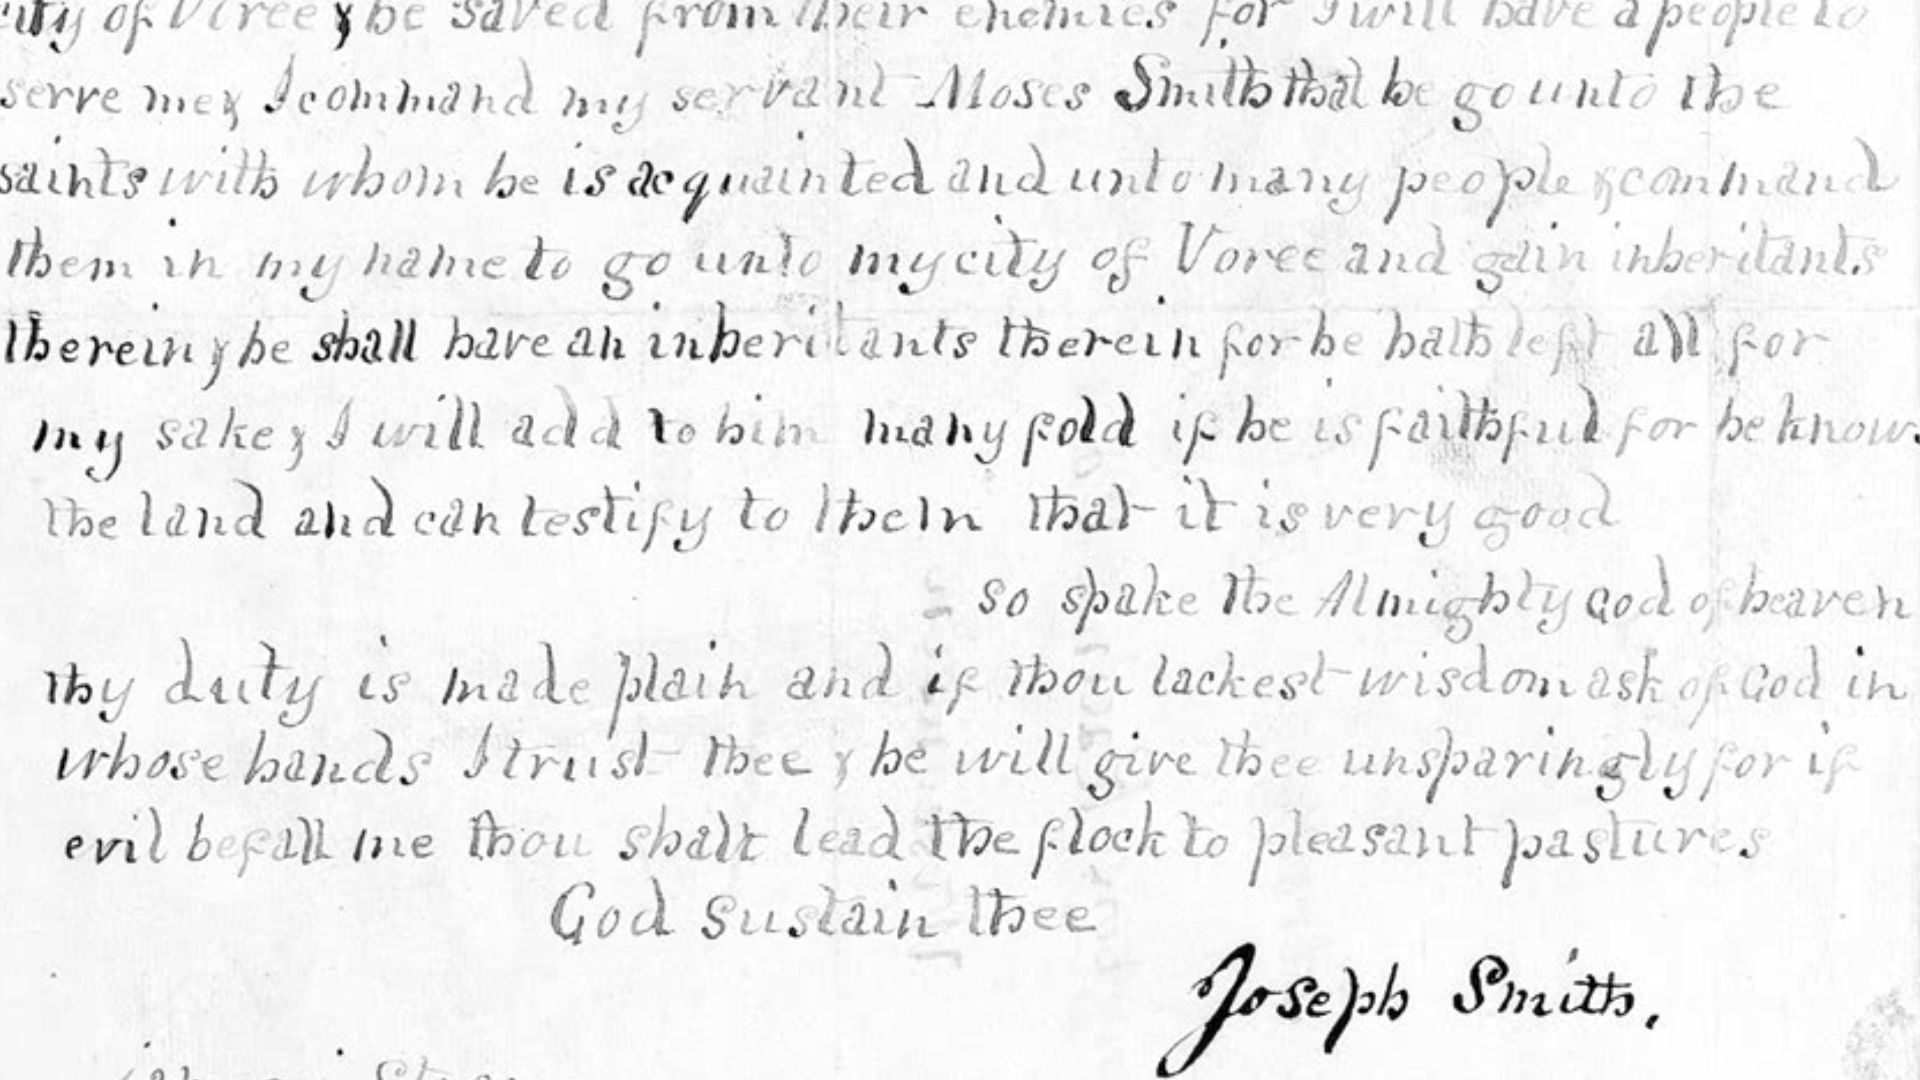 city of Voree & be saved from their enemies for I will have a people to
serve me & I command my servant Moses Smith that he go unto the
saints with whom he is acquainted and unto many people & command
them in my name to go unto my city of Voree and gain inheritants
therein & he shall have an inheritants therein for he hath left all for
my sake & I will add to him many fold if he is faithful for he knows
the land and can testify to them that it is very good
so spake the Almighty God of heaven
thy duty is made plain and if thou lackest wisdom ask of God in
whose hands I trust thee & he will give thee unsparingly for if
evil befall me thou shalt lead the flock to pleasant pastures
God sustain thee
Joseph Smith.